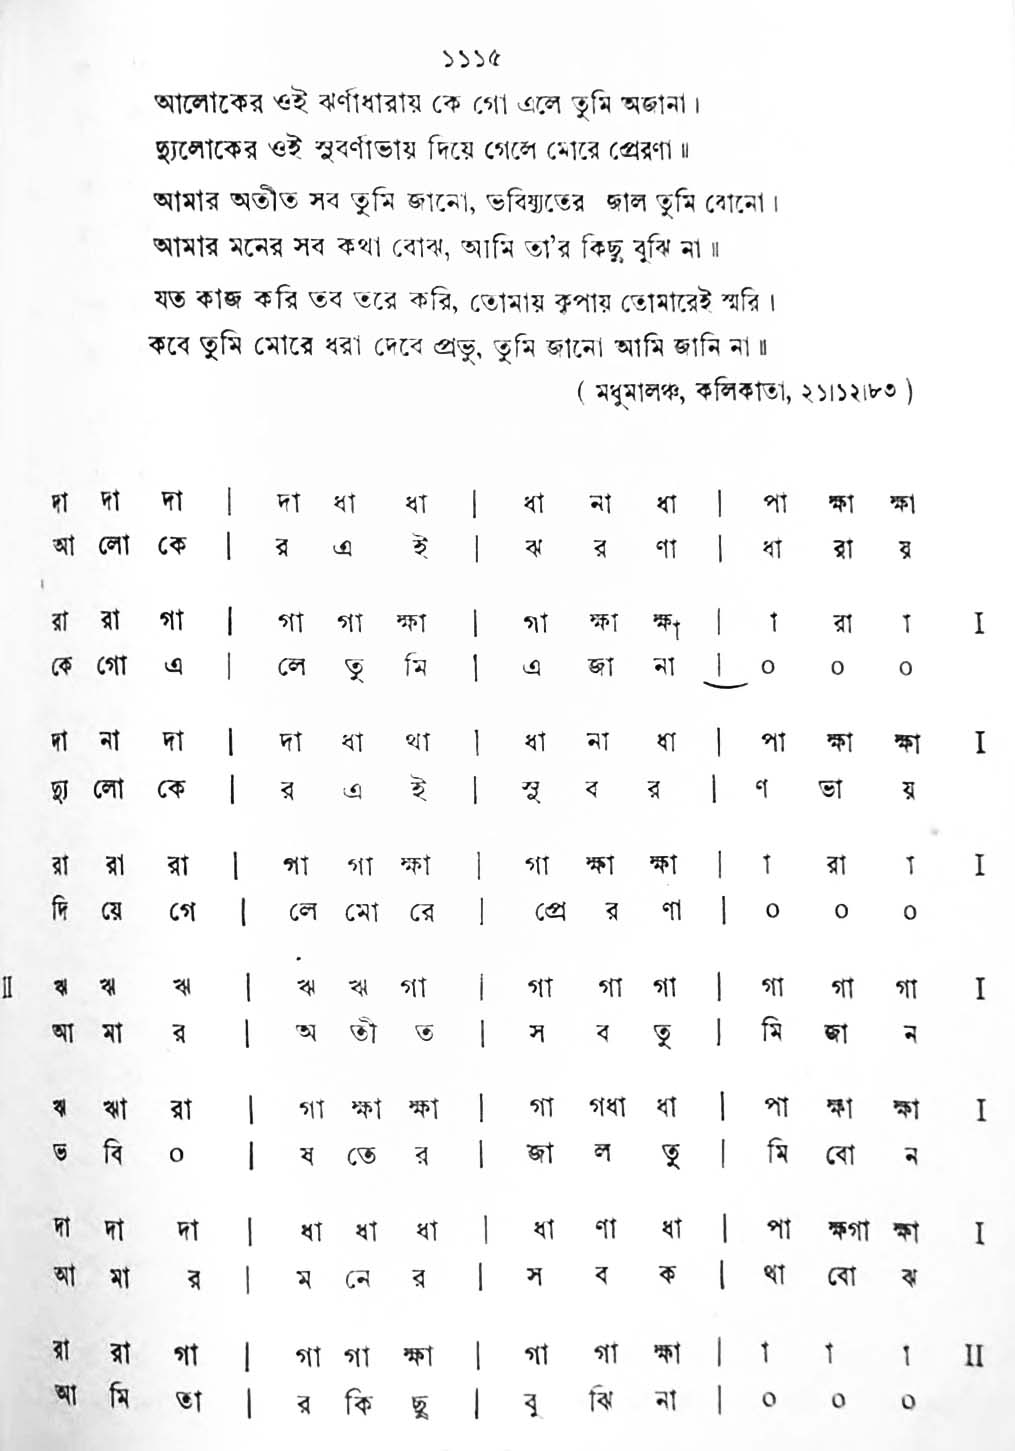 ১১১৫
আলোকের ওই ঝর্ণাধারায় কে গো এলে তুমি অজানা।
দ্যুলোকের ওই সুবর্ণাভায় দিয়ে গেলে মোরে প্রেরণা॥
আমার অতীত সব তুমি জানো, ভবিষ্যতের জাল তুমি বোনো।
আমার মনের সব কথা বোঝ, আমি তা'র কিছু বুঝি না॥
যত কাজ করি তব তরে করি, তোমায় কৃপায় তোমারেই স্মরি।
কবে তুমি মোরে ধরা দেবে প্রভু, তুমি জানো আমি জানি না॥
( মধুমালঞ্চ, কলিকাতা, ২১।১২।৮৩ )
দা দা দা | দা ধা ধা | ধা না ধা | পা ক্ষা ক্ষা
আ লো কে | র এ ই | ঝ র ণা | ধা রা য়
রা রা গা | গা গা ক্ষা | গা ক্ষা ক্ষা | া রা া I
কে গো এ | লে তু মি | এ জা না | ০ ০ ০
দা না দা | দা ধা থা | ধা না ধা | পা ক্ষা ক্ষা I
দ্যু লো কে | র এ ই | সু ব র | ণ ভা য়
রা রা রা | গা গা ক্ষা | গা ক্ষা ক্ষা | া রা া I
দি য়ে গে | লে মো রে | প্রে র ণা | ০ ০ ০
II ঋ ঋ ঋ | ঋ ঋ গা | গা গা গা | গা গা গা I
আ মা র | অ তী ত | স ব তু | মি জা ন
ঋ ঋা রা | গা ক্ষা ক্ষা | গা গধা ধা | পা ক্ষা ক্ষা I
ভ বি ০ | ষ তে র | জা ল তু | মি বো ন
দা দা দা | ধা ধা ধা | ধা ণা ধা | পা ক্ষগা ক্ষা I
আ মা র | ম নে র | স ব ক | থা বো ঝ
রা রা গা | গা গা ক্ষা | গা গা ক্ষা | া া া II
আ মি তা | র কি ছু | বু ঝি না | ০ ০ ০